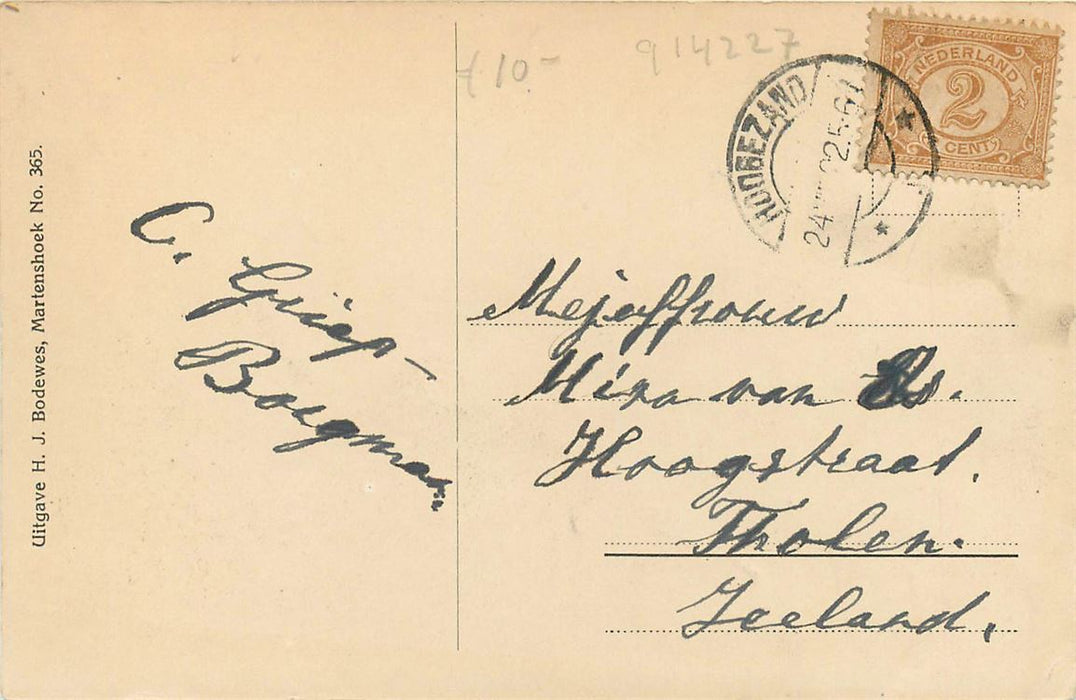 Uitgave H. J. Bodewes, Martenshoek No. 365.
C. Griep-
Borgman.
f 10-
914227
NEDERLAND
2
CENT
HOOGEZAND
24
Mejuffrouw
Mina van Es.
Hoogstraat.
Tholen.
Zeeland.